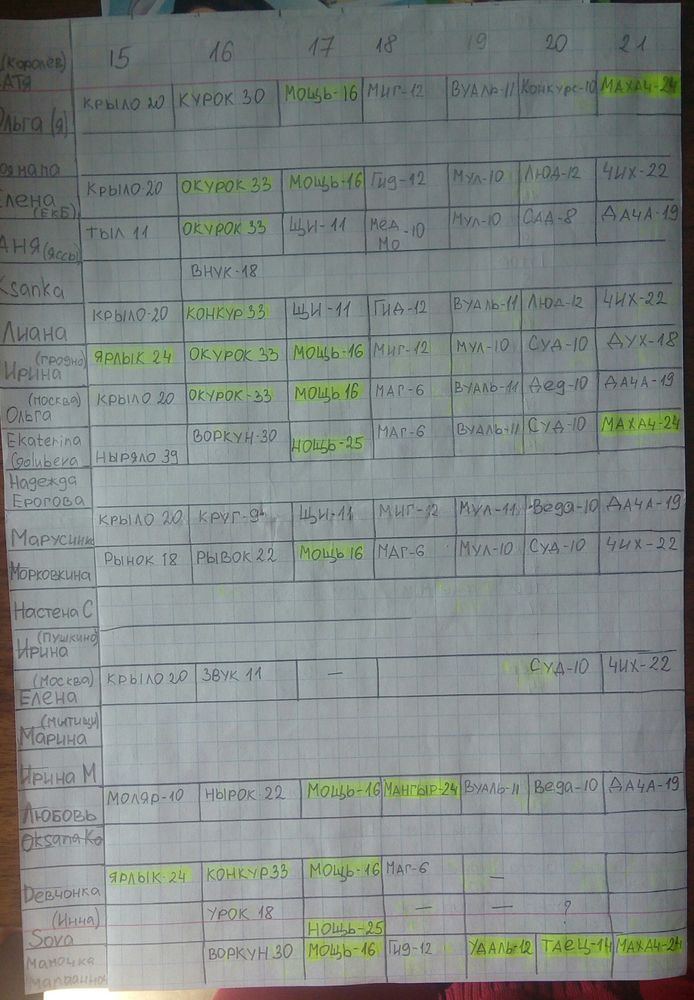 15 16 17 18 19 20 21
(Королёв)
КРЫЛО 20 КУРОК 30 МОЩЬ-16 МИГ-12 ВУАЛЬ-11 Конкурс-10 МАХАЧ-24
Ольга (я)
КРЫЛО-20 ОКУРОК 33 МОЩЬ-16 ГИД-12 МУЛ-10 ЛЮД-12 ЧИХ-22
Елена
(ЕКБ)
ТЫЛ 11 ОКУРОК 33 ЩИ-11 МЁД -10 МУЛ-10 САД-8 ДАЧА-19
МО
АНЯ (Яссы)
ВНУК-18
Ksanka
КРЫЛО-20 КОНКУР 33 ЩИ-11 ГИД-12 ВУАЛЬ-11 ЛЮД-12 ЧИХ-22
Лиана
(Гродно) ЯРЛЫК 24 ОКУРОК 33 МОЩЬ-16 МИГ-12 МУЛ-10 СУД-10 ДУХ-18
Ирина
(москва) КРЫЛО 20 ОКУРОК-33 МОЩЬ 16 МАГ-6 ВУАЛЬ-11 Дед-10 ДАЧА-19
Ольга
Ekaterina ВОРКУН-30 НОЩЬ-25 МАГ-6 ВУАЛЬ-11 СУД-10 МАХАЧ-24
Golubeva НЫРЯЛО 39
Надежда
Ерогова
КРЫЛО 20 КРУГ-9 ЩИ-11 МИГ-12 МУЛ-11 Веда-10 ДАЧА-19
Марусинк
РЫНОК 18 РЫВОК 22 МОЩЬ 16 МАГ-6 МУЛ-10 СУД-10 ЧИХ-22
Морковкина
Настена С
(Пушкино)
Ирина
(москва) КРЫЛО 20 ЗВУК 11 — СУД-10 ЧИХ-22
Елена
(мытищи)
Марина
Ирина М
МОЛЯР-10 НЫРОК-22 МОЩЬ-16 МАНГЫР-24 ВУАЛЬ-11 Веда-10 ДАЧА-19
Любовь
Oksana Ko
ЯРЛЫК-24 КОНКУР 33 МОЩЬ-16 МАГ-6 —
Девчонка
(Инна) УРОК 18 НОЩЬ-25 — — ?
Sova
ВОРКУН 30 МОЩЬ-16 ГИД-12 УДАЛЬ-12 ТАЕЦ-14 МАХАЧ-24
Мамочка